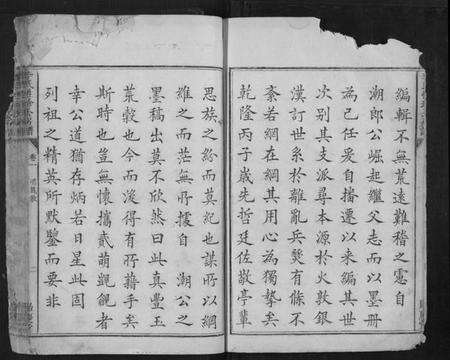 編輯不無荒遠難稽之憲自
湖郎公崛起繼父志而以墨冊
為己任爰自播遷以來編其世
次別其支派尋本源於火敦銀
漢訂世系於離亂兵燹有條不
紊若網在綱其用心為獨摯矣
乾隆丙子歲先哲廷佐敬亭輩
思族之紛而莫紀也謀所以綱
維之而茫無所據自 湖公之
墨稿出莫不欣然曰此真豐玉
荒穀也今而後得有所藉手矣
斯時也豈無懷攜貳萌覬覦者
幸公道猶存炳若日星此固
列祖之精英所默鑒而要非
卷一